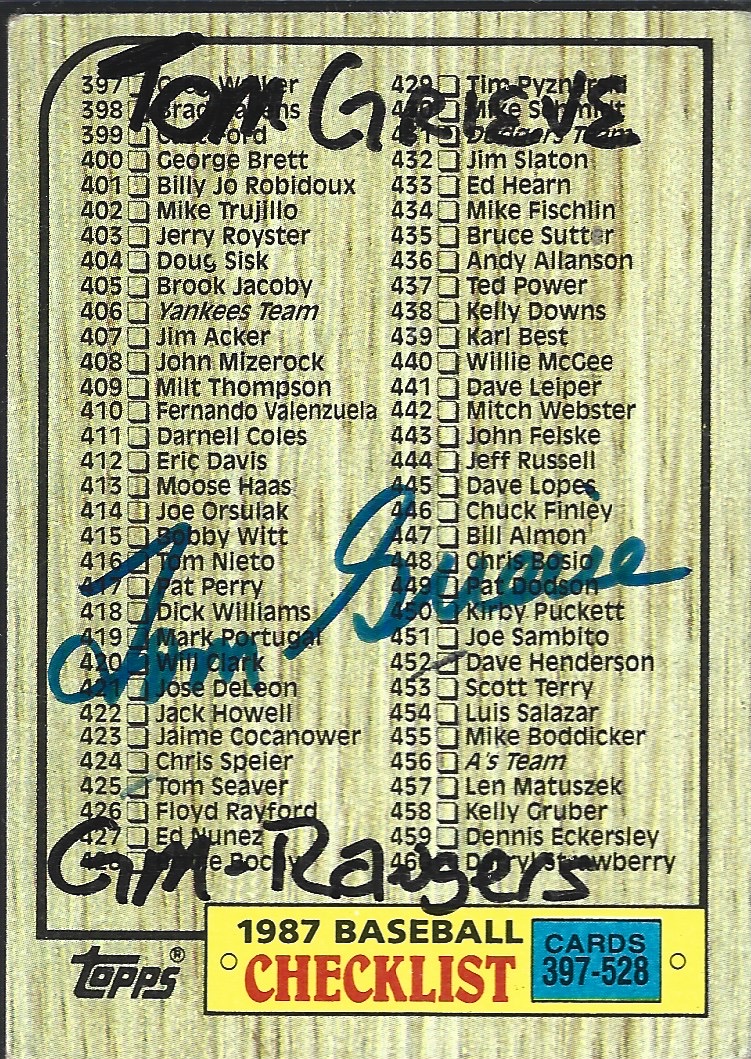 Tom GRIEVE
397 Greg Walker
398
399
400 George Brett
401 Billy Jo Robidoux
402 Mike Trujillo
403 Jerry Royster
404 Doug Sisk
405 Brook Jacoby
406 Yankees Team
407 Jim Acker
408 John Mizerock
409 Milt Thompson
410 Fernando Valenzuela
411 Darnell Coles
412 Eric Davis
413 Moose Haas
414 Joe Orsulak
415 Bobby Witt
416 Tom Nieto
417 Pat Perry
418 Dick Williams
419 Mark Portugal
420 Will Clark
421 Jose DeLeon
422 Jack Howell
423 Jaime Cocanower
424 Chris Speier
425 Tom Seaver
426 Floyd Rayford
427 Ed Nunez
Bochy
429 Tim Pyznarski
430 Mike Schmidt
431 Dodgers Team
432 Jim Slaton
433 Ed Hearn
434 Mike Fischlin
435 Bruce Sutter
436 Andy Allanson
437 Ted Power
438 Kelly Downs
439 Karl Best
440 Willie McGee
441 Dave Leiper
442 Mitch Webster
443 John Felske
444 Jeff Russell
445 Dave Lopes
446 Chuck Finley
447 Bill Almon
448 Chris Bosio
449 Pat Dodson
450 Kirby Puckett
451 Joe Sambito
452 Dave Henderson
453 Scott Terry
454 Luis Salazar
455 Mike Boddicker
456 A's Team
457 Len Matuszek
458 Kelly Gruber
459 Dennis Eckersley
460 Darryl Strawberry
Tom Grieve
Gm-Rangers
topps®
1987 BASEBALL
CHECKLIST
CARDS
397-528